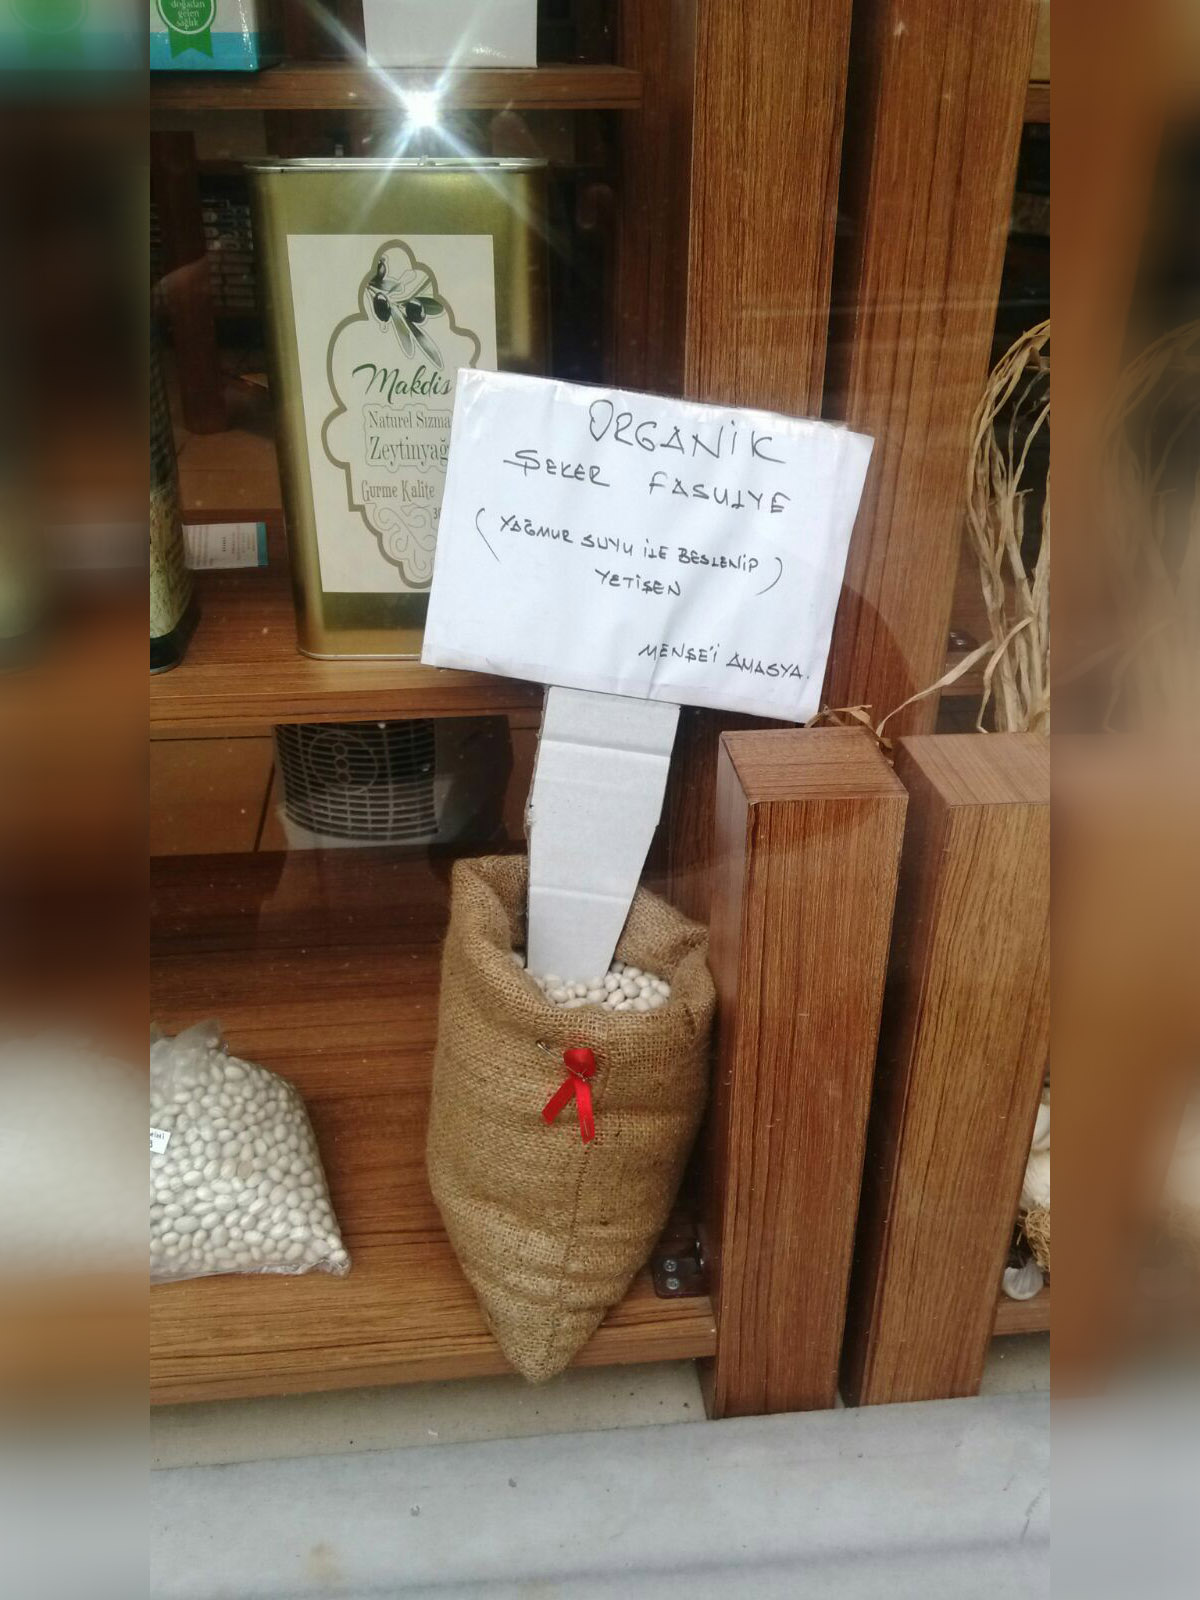 doğadan
gelen
sağlık
Makdis
Naturel Sızma
Zeytinyağ
Gurme Kalite
ORGANİK
ŞEKER FASULYE
(YAĞMUR SUYU İLE BESLENİP
YETİŞEN)
MENŞE'İ AMASYA.